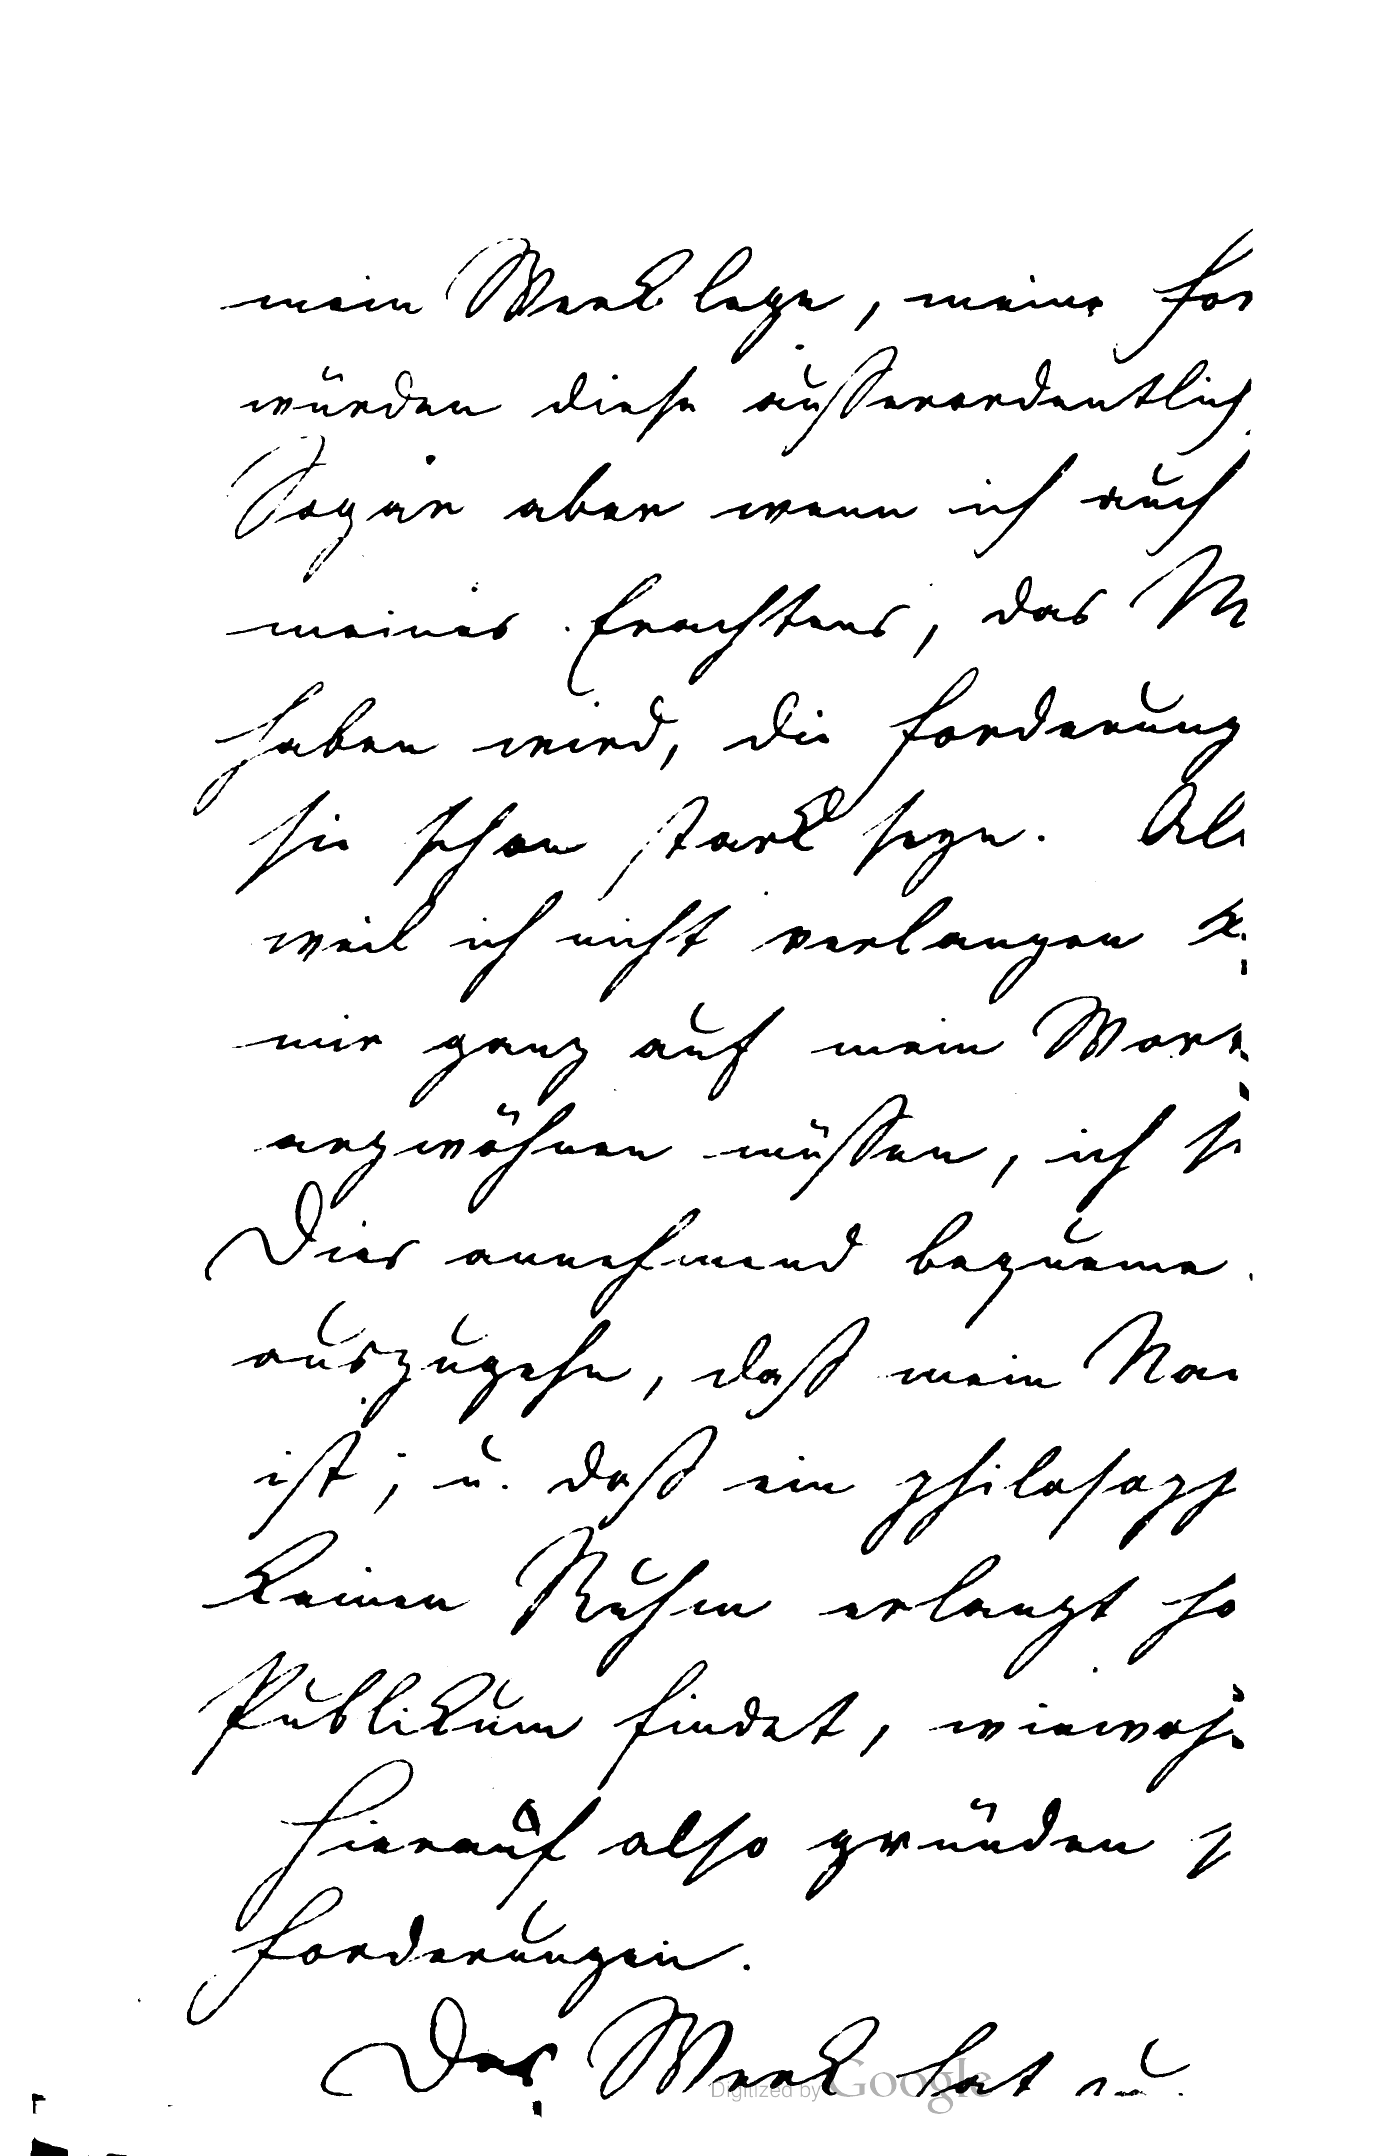 mein Werk lege, meine For
würden diese außerordentlich
Sogar aber wenn ich auch
meines Erachtens, das M
haben wird, die Forderung
sie schon stark seyn. Al
weil ich nicht verlangen k
mir ganz auf mein Wort
argwöhnen müssen, ich s
Dies annehmend bequeme
auszugehn, daß mein Na
ist; u. daß ein philosoph
keinen Ruhm erlangt ha
Publikum findet, wiewoh
Hierauf also gründen s
Forderungen.
Das Werk hat u.
Digitized by Google